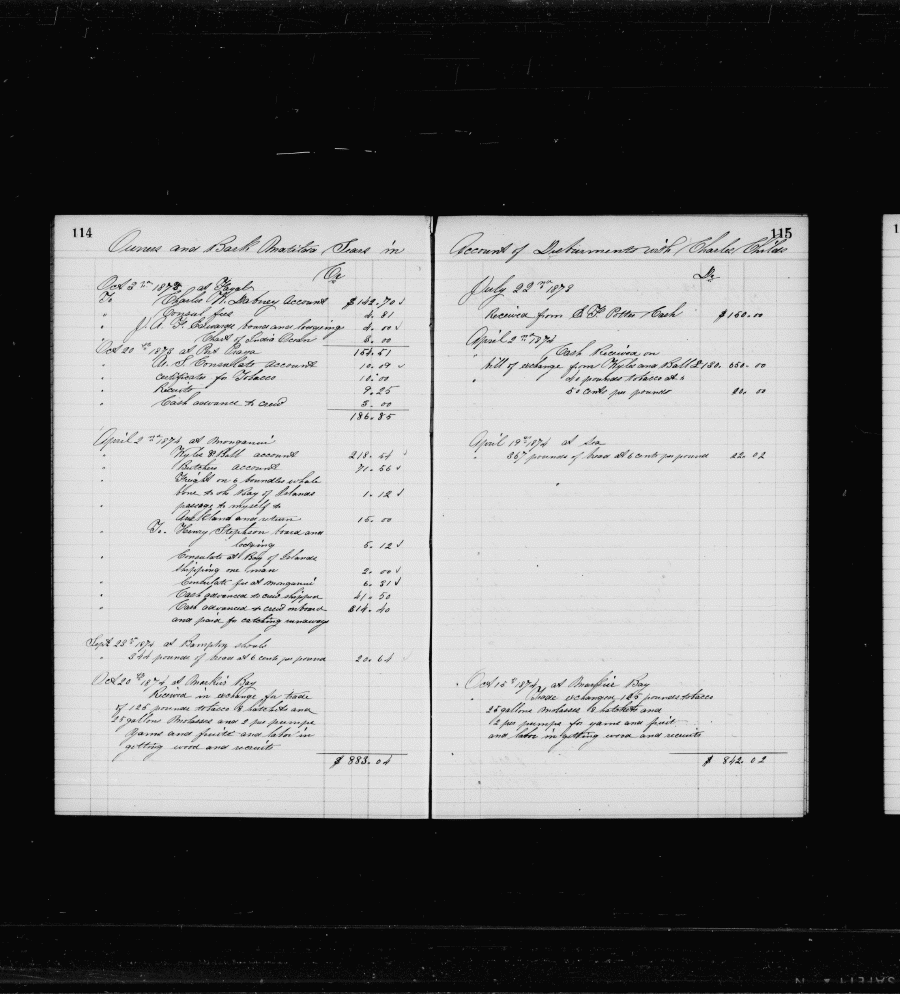 114
Owners and Bark Matilda Sears in
Cr
Oct 2nd 1873 at Fayal
To Charles W. Dabney account $142.70 ✓
" Consul fees 4.81
" J A. F. Edwards board and lodging 4.00 ✓
" Chart of India Ocean 3.00
154.51
Oct 20th 1873 at Port Praya
" U. S. Consulate account 10.09 ✓
" certificates for Tobacco 10.00
" Recruits 9.25
" Cash advance to crew 3.00
186.85
April 2nd 1874 at Monganui
" Wyles & Ball account 218.54 ✓
" Butcher account 71.56 ✓
" Freight on 6 boundles whale
bone to the Bay of Islands 1.12 ✓
" passage to myself to
Auckland and return 15.00
" To. Henry Stephson board and
lodging 5.12 ✓
" Consulate at Bay of Islands
shipping one man 2.00 ✓
" Consulate fees at Monganui 6.81 ✓
" Cash advanced to crew shipped 41.50
" Cash advanced to crew on board 314.40
and paid for catching runaways
Sept 23rd 1874 at Bampton shoals
" 344 pounds of bread at 6 cents per pound 20.64
Oct 20th 1874 at Bay
Received in exchange for trade
of 125 pounds tobacco 8 hatchets and
25 gallons Molasses and 2 prs pumps
Yams and fruit and labor in
getting wood and recruits
$883.04
115
Account of Disburments with Charles Childs
Dr
July 22nd 1873
Received from S. P. Potter Cash $150.00
April 2nd 1874
" Cash Received on
bill of exchange from Wyles and Ball £130. 650.00
" 40 pounds tobacco at "
50 cents per pounds 20.00
April 19th 1874 at sea
" 367 pounds of bread at 6 cents per pound 22.02
Oct 15th 1874 at Bay
" Trade exchanged 125 pounds tobacco
25 gallons Molasses 8 hatchets and
2 prs pumps for yams and fruit
and labor in getting wood and recruits
$842.02